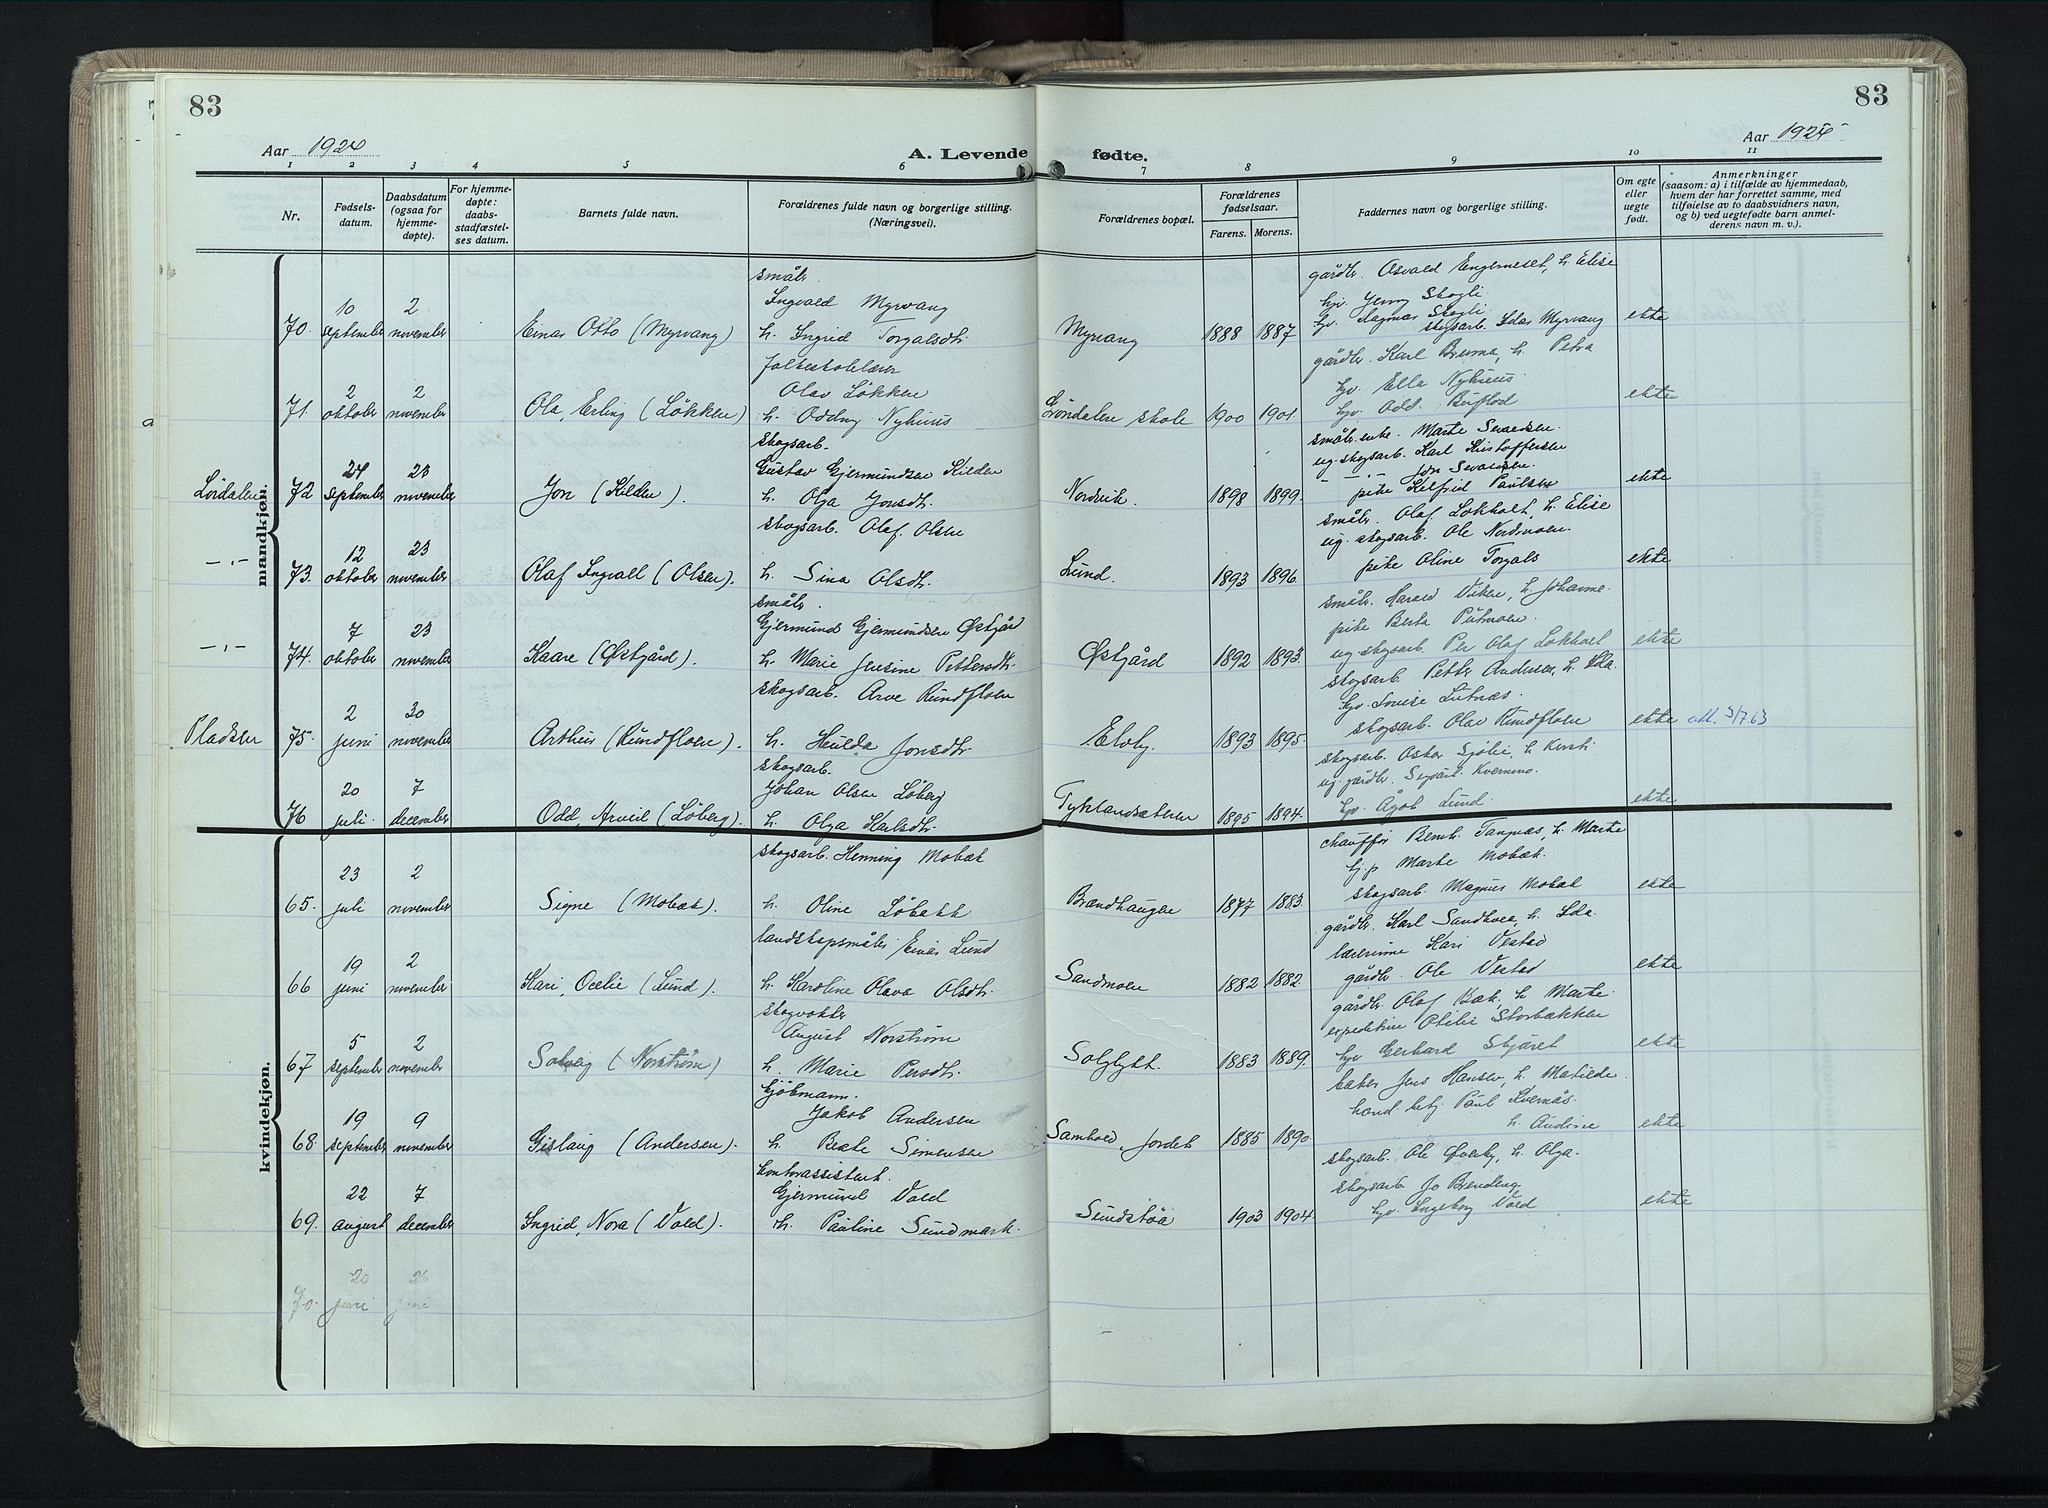 83
83
Aar 1924
A. Levende
fødte.
Aar 1924
1 2 3 4 5 6 7 8 9 10 11
Nr.
Fødsels-
datum.
Daabsdatum
(ogsaa for
hjemme-
døpte).
For hjemme-
døpte:
daabs-
stadfæstel-
ses datum.
Barnets fulde navn.
Forældrenes fulde navn og borgerlige stilling.
(Næringsvei).
Forældrenes bopæl.
Forældrenes
fødselsaar.
Farens. Morens.
Faddernes navn og borgerlige stilling.
Om egte
eller
uegte
født.
Anmerkninger
(saasom: a) i tilfælde av hjemmedaab,
hvem der har forrettet samme, med
tilføielse av to daabsvidners navn,
og b) ved uegtefødte barn anmel-
derens navn m. v.).
mandkjøn.
70. 10 september 2 november Einar Otto (Myrvang)
småbr.
Ingvald Myrvang
h. Ingrid Torgalsdtr.
Myrvang 1888 1887
gårdbr. Osvald Engerneset, h. Elise
hjv. Jenny Skogli
hjv. Dagmar Skogli
skogsarb. Idar Myrvang
ekte
71. 2 oktober 2 november Ola, Erling (Løkken)
folkeskolelærer
Olav Løkken
h. Oddny Nyhuus
Lørdalen skole 1900 1901
gårdbr. Karl Bruma, h. Petra
hjv. Ella Nyhuus
hjv. Odd Buflod
ekte
Lørdalen
72 24 september 23 november Jon (Kilden).
skogsarb.
Gustav Gjermundsen Kilden
h. Olga Jonsdtr.
Nordvik. 1898 1899.
småbr. enke. Marte Sevaldsen.
ug. skogsarb. Karl Kristoffersen
- " - Jon Sevaldsen.
pike Kelfrid Paulsen
ekte
-,-
73. 12 oktober 23 november Olaf Ingvall (Olsen).
skogsarb. Olaf. Olsen
h. Sina Olsdtr.
Lund. 1893 1896.
småbr. Olaf Løkholt, h. Elise
ug. skogsarb. Ole Nordmoen.
pike Oline Torgals
ekte
-,-
74. 7 oktober 23 november Kaare (Østgård).
småbr.
Gjermund Gjermundsen Østgård
h. Marie Jensine Pettersdtr.
Østgård 1892 1893.
småbr. Harald Viken, h. Johanne.
pike Berta Putmoen.
ug. skogsarb. Per Olaf Løkholt
ekte
Pladsen
75. 2 juni 30 november Arthur (Rundfloen).
skogsarb. Arve Rundfloen
h. Hulda Jonsdtr.
Elvby. 1893 1895.
skogsarb. Petter Andersen, h. Ida.
hjv. Louise Lutnæs.
skogsarb. Olav Rundfloen
ekte att. 3/7 63
76 20 juli. 7 december Odd, Arveid (Løberg).
skogsarb.
Johan Olsen Løberg
h. Olga Karlsdtr.
1895 1894.
skogsarb. Oskar Sjølie, h. Kirsti
ug. gårdbr. Sigvart Kvernmo.
hjv. Ågot Lund.
ekte
kvindekjøn.
65. 23 juli 2 november Signe (Mobæk).
skogsarb. Henning Mobæk
h. Oline Løbakk
Brændhaugen 1877 1883.
chauffør Bernh. Tangnæs, h. Marte
hj.p Marte Mobæk.
skogsarb. Magnus Mobæk
ekte
66 19 juni 2 november Kari, Ocelie (Lund).
landskapsmåler Einar Lund
h. Karoline Olava Olsdtr.
Sandmoen 1882 1882.
gårdbr. Karl Sandkvea, h. Ida.
lærerinne Kari Vestad
gårdbr. Ole Vestad
ekte
67 5 september 2 november Solveig (Norstrøm)
skogvokter
August Norstrøm
h. Marie Persdtr.
Solglytt. 1883 1889.
gårdbr. Olaf Bæk, h. Marte.
expeditrise Otilie Storbækken
hjv Gerhard Skjæret
ekte
68. 19 september 9 november Gislaug (Andersen).
Kjøbmann.
Jakob Andersen
h. Beate Simensen
Samhold, Jordet 1885 1890.
baker Jens Hansen, h. Matilde.
hand. betj. Paul Kvernås.
h. Andine
ekte
69. 22 august 7 december Ingrid, Nora (Vold).
kontorassistent.
Gjermund Vold
h. Pauline Sundmark.
Sundstøa 1903 1904.
skogsarb. Ole Øverby, h. Olga.
skogsarb. Jo Brending.
hjv. Ingeborg Vold
ekte
70. 20 juni 26 juni